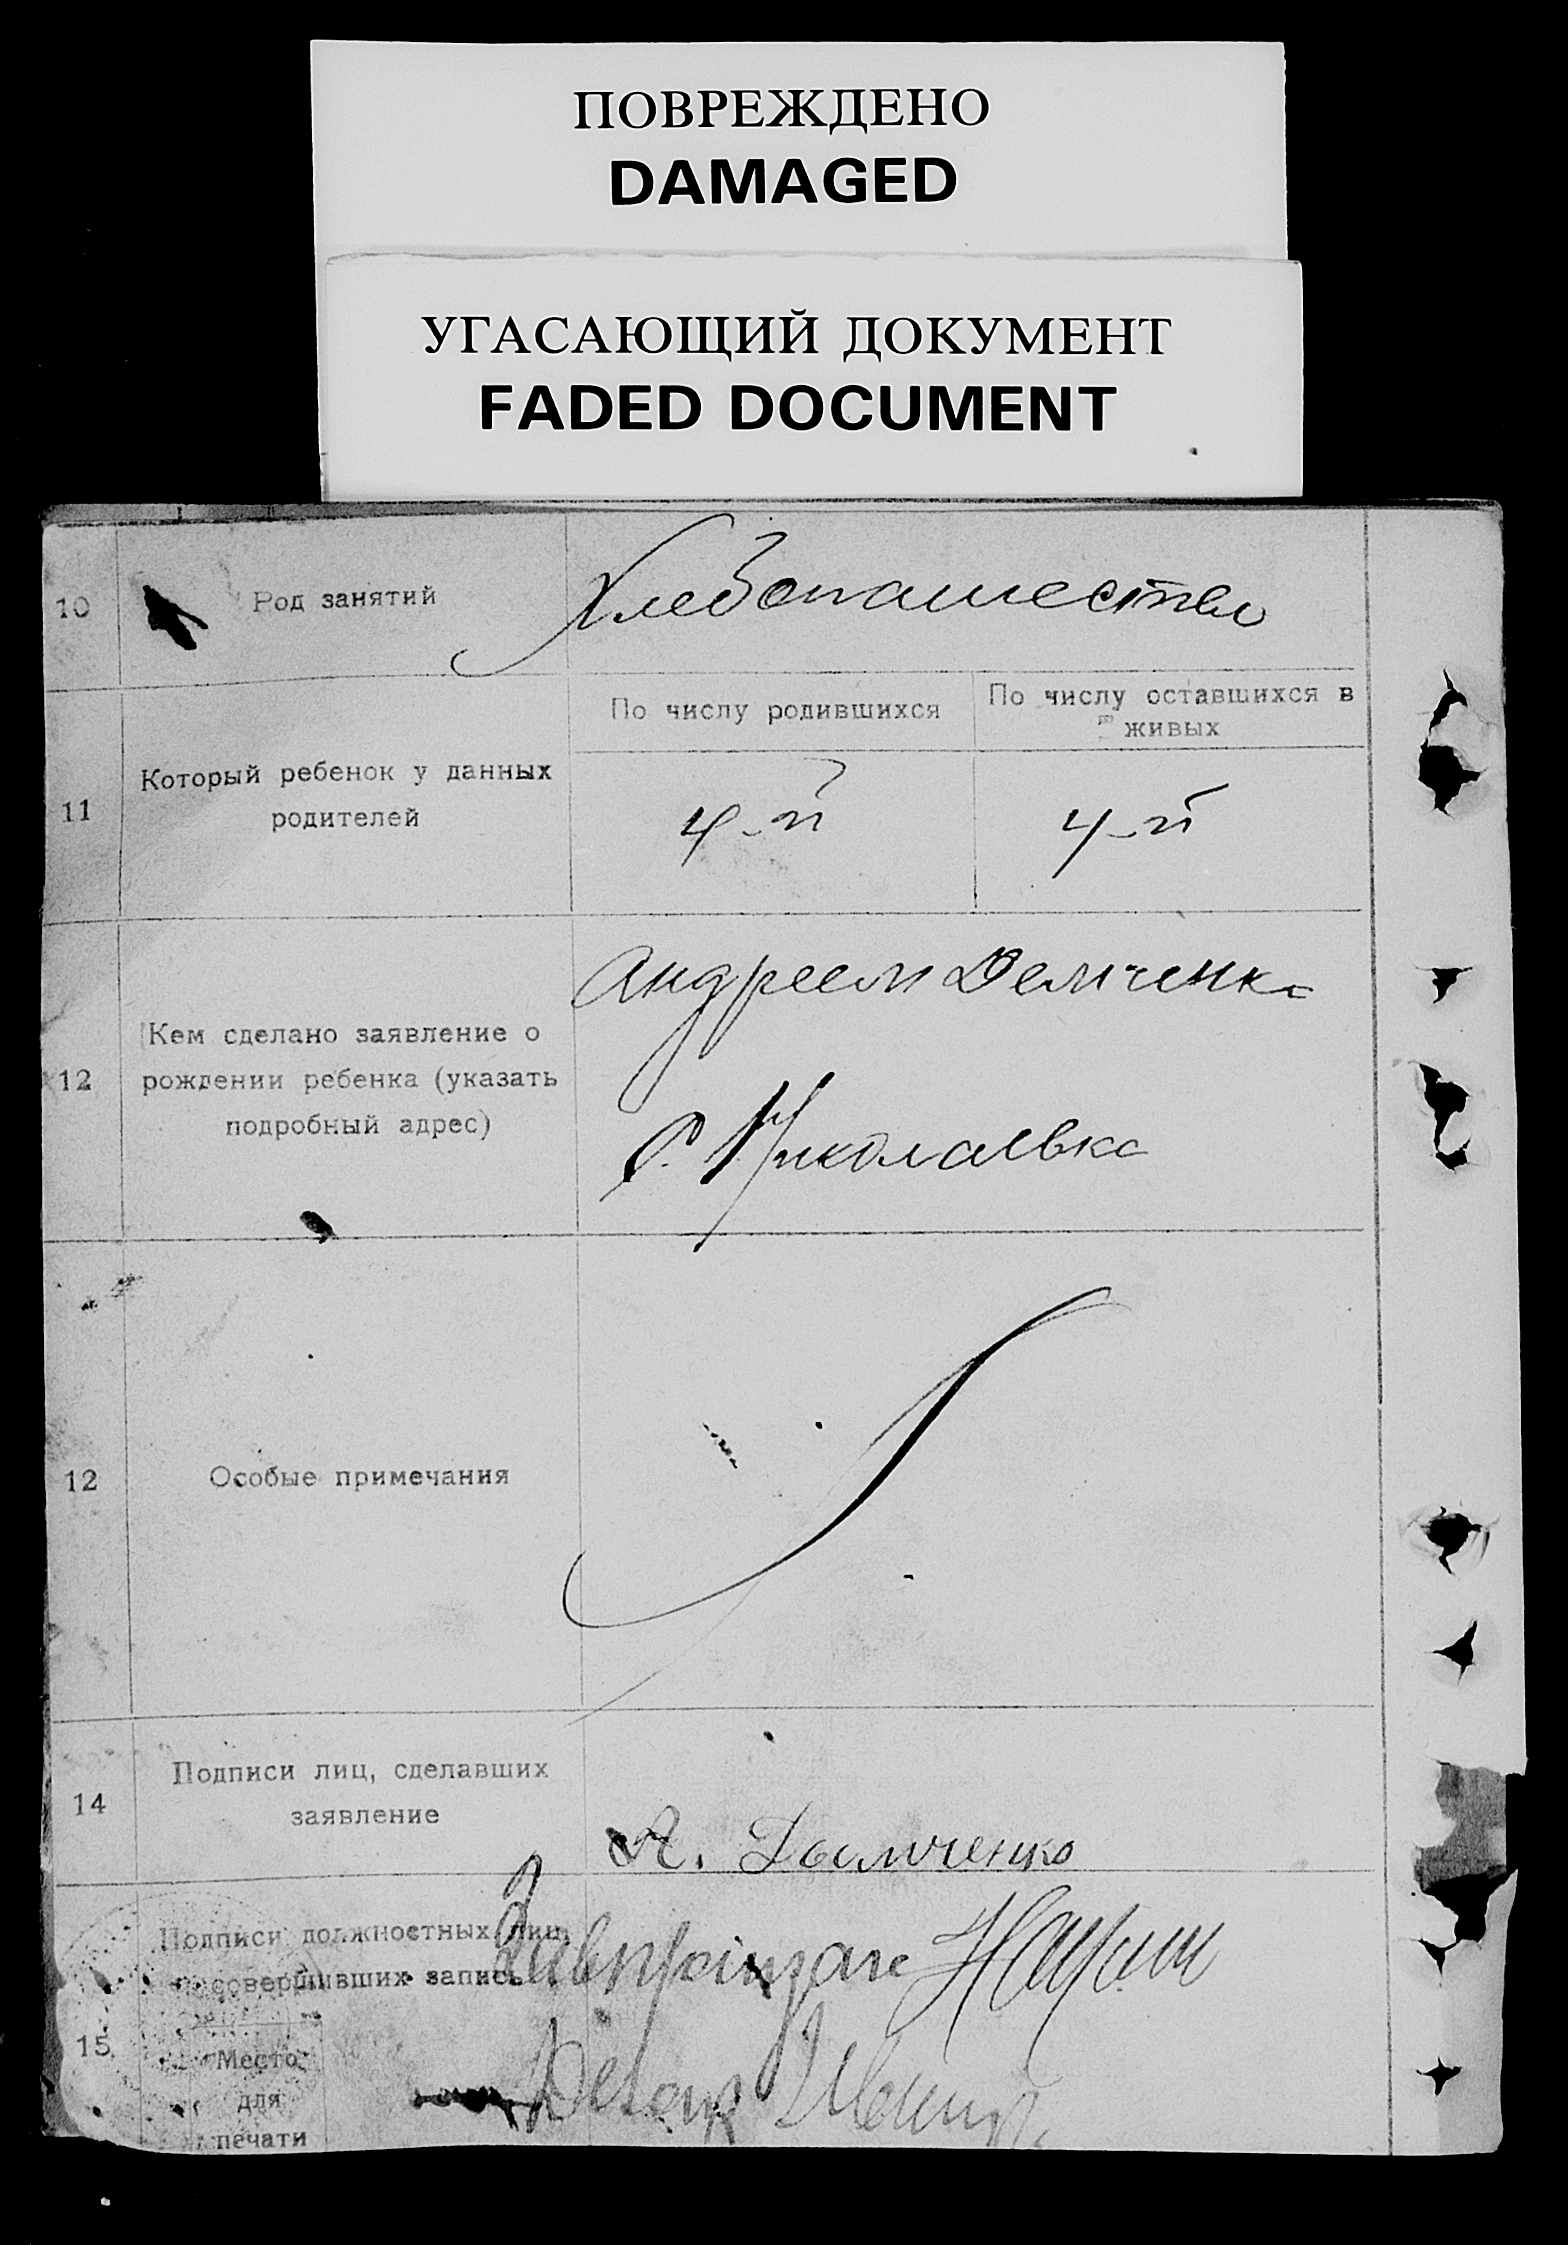 ПОВРЕЖДЕНО
DAMAGED
УГАСАЮЩИЙ ДОКУМЕНТ
FADED DOCUMENT
10 Род занятий Хлебопашество
По числу родившихся
По числу оставшихся в
живых
Который ребенок у данных
11
родителей
4-й 4-й
Андреем Демченко
Кем сделано заявление о
12 рождении ребенка (указать
подробный адрес)
С. Николаевка
12 Особые примечания
Подписи лиц, сделавших
14
заявление
А. Дымченко
Подписи должностных лиц,
совершивших запись
15
Место
для
печати